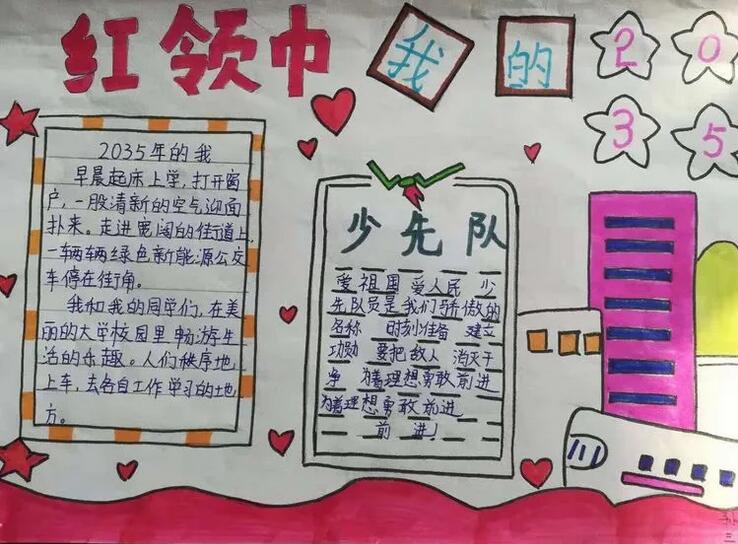 红领巾 我 的 2 0
3 5
2035年的我
早晨起床上学,打开窗
户,一股清新的空气迎面
扑来。走进宽阔的街道上,
一辆辆绿色新能源公交
车停在街角。
我和我的同学们,在美
丽的大学校园里畅游生
活的乐趣。人们秩序地
上车,去各自工作学习的地
方。
少先队
爱祖国 爱人民 少
先队员是我们骄傲的
名称 时刻准备 建立
功勋 要把敌人 消灭干
净 为着理想勇敢前进
为着理想勇敢前进
前进!
三